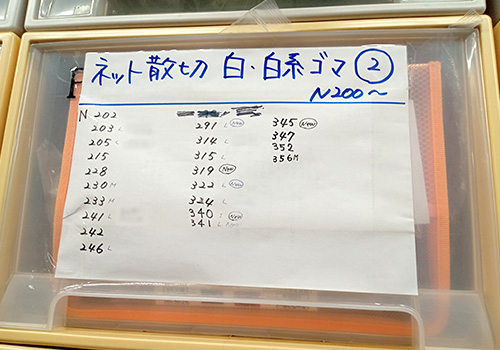 ネット散切 白・白系ゴマ ②
N200〜
N 202
203 L
205 L
215
228
230 M
233 M
241 L
242
246 L
291 L New
314 L
315 L
319 New
322 L New
324 L
340 L New
341 L New
345 New
347
352
356M